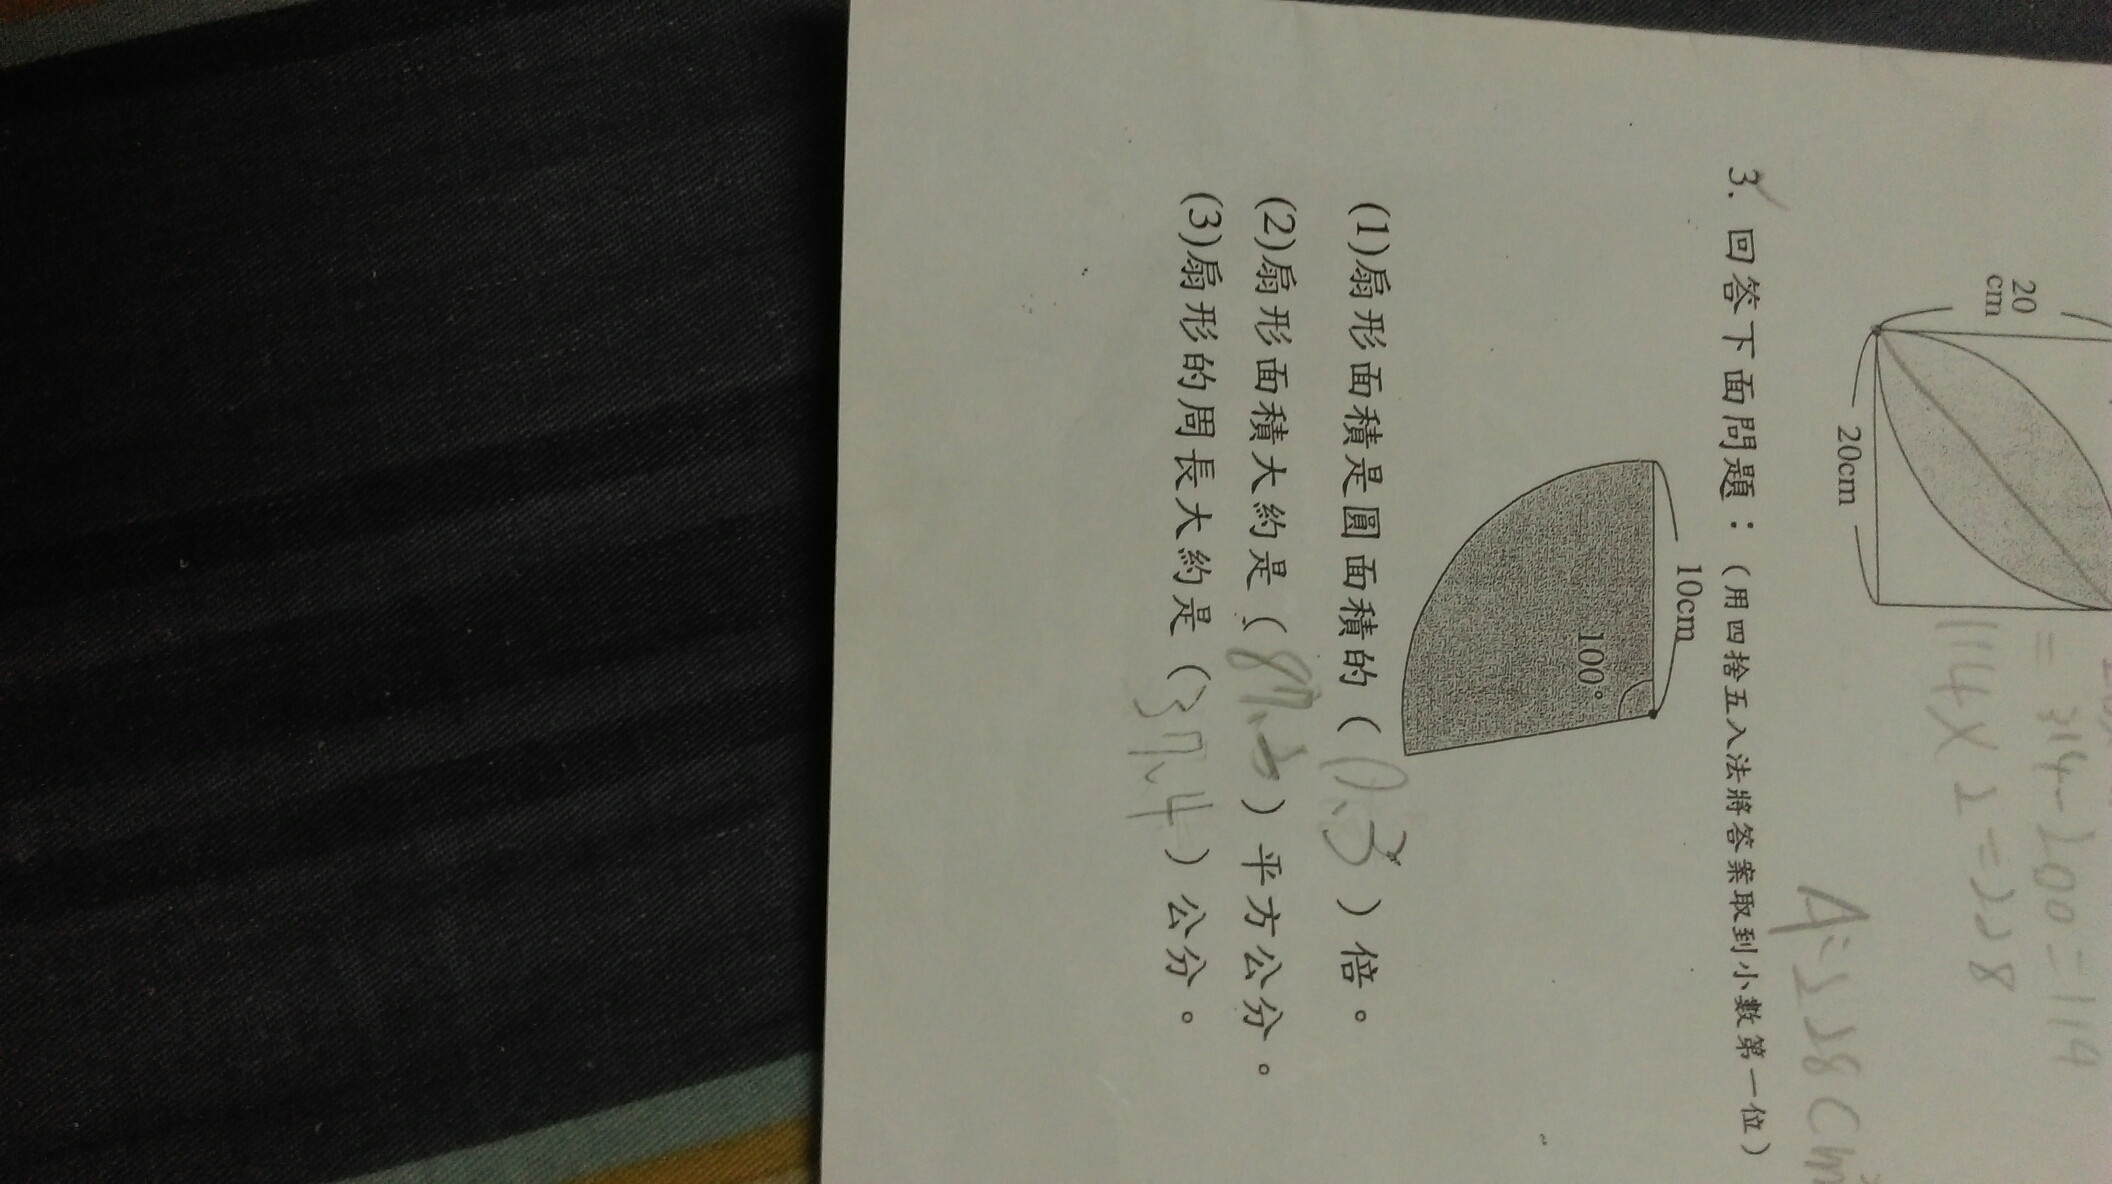 20
cm
20cm
= 314-200=114
114×2=228
A:228cm²
3. 回答下面問題：（用四捨五入法將答案取到小數第一位）
10cm
100°
(1)扇形面積是圓面積的（0.3）倍。
(2)扇形面積大約是（87.2）平方公分。
(3)扇形的周長大約是（37.4）公分。